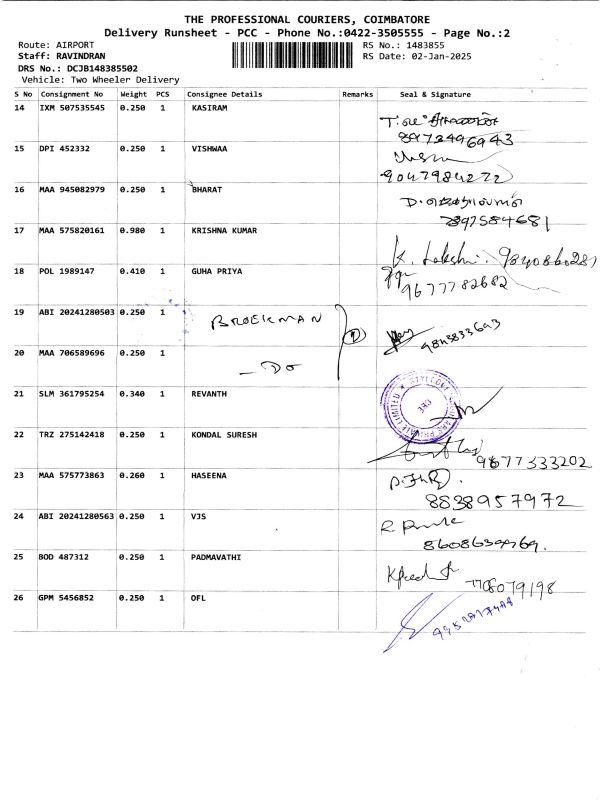 THE PROFESSIONAL COURIERS, COIMBATORE
Delivery Runsheet - PCC - Phone No.:0422-3505555 - Page No.:2
Route: AIRPORT RS No.: 1483855
Staff: RAVINDRAN RS Date: 02-Jan-2025
DRS No.: DCJB148385502
Vehicle: Two Wheeler Delivery
S No Consignment No Weight PCS Consignee Details Remarks Seal & Signature
14 IXM 507535545 0.250 1 KASIRAM
8972496943
15 DPI 452332 0.250 1 VISHWAA
9047984272
16 MAA 945082979 0.250 1 BHARAT
7397584681
17 MAA 575820161 0.980 1 KRISHNA KUMAR
K. Lakshmi. 9840860281
18 POL 1989147 0.410 1 GUHA PRIYA
9677782682
19 ABI 20241280503 0.250 1 BROEKMAN 1
9843833693
20 MAA 706589696 0.250 1 - DO
21 SLM 361795254 0.340 1 REVANTH
22 TRZ 275142418 0.250 1 KONDAL SURESH
9677333202
23 MAA 575773863 0.260 1 HASEENA
8838957972
24 ABI 20241280563 0.250 1 VJS
25 BOD 487312 0.250 1 PADMAVATHI
7708079198
26 GPM 5456852 0.250 1 OFL